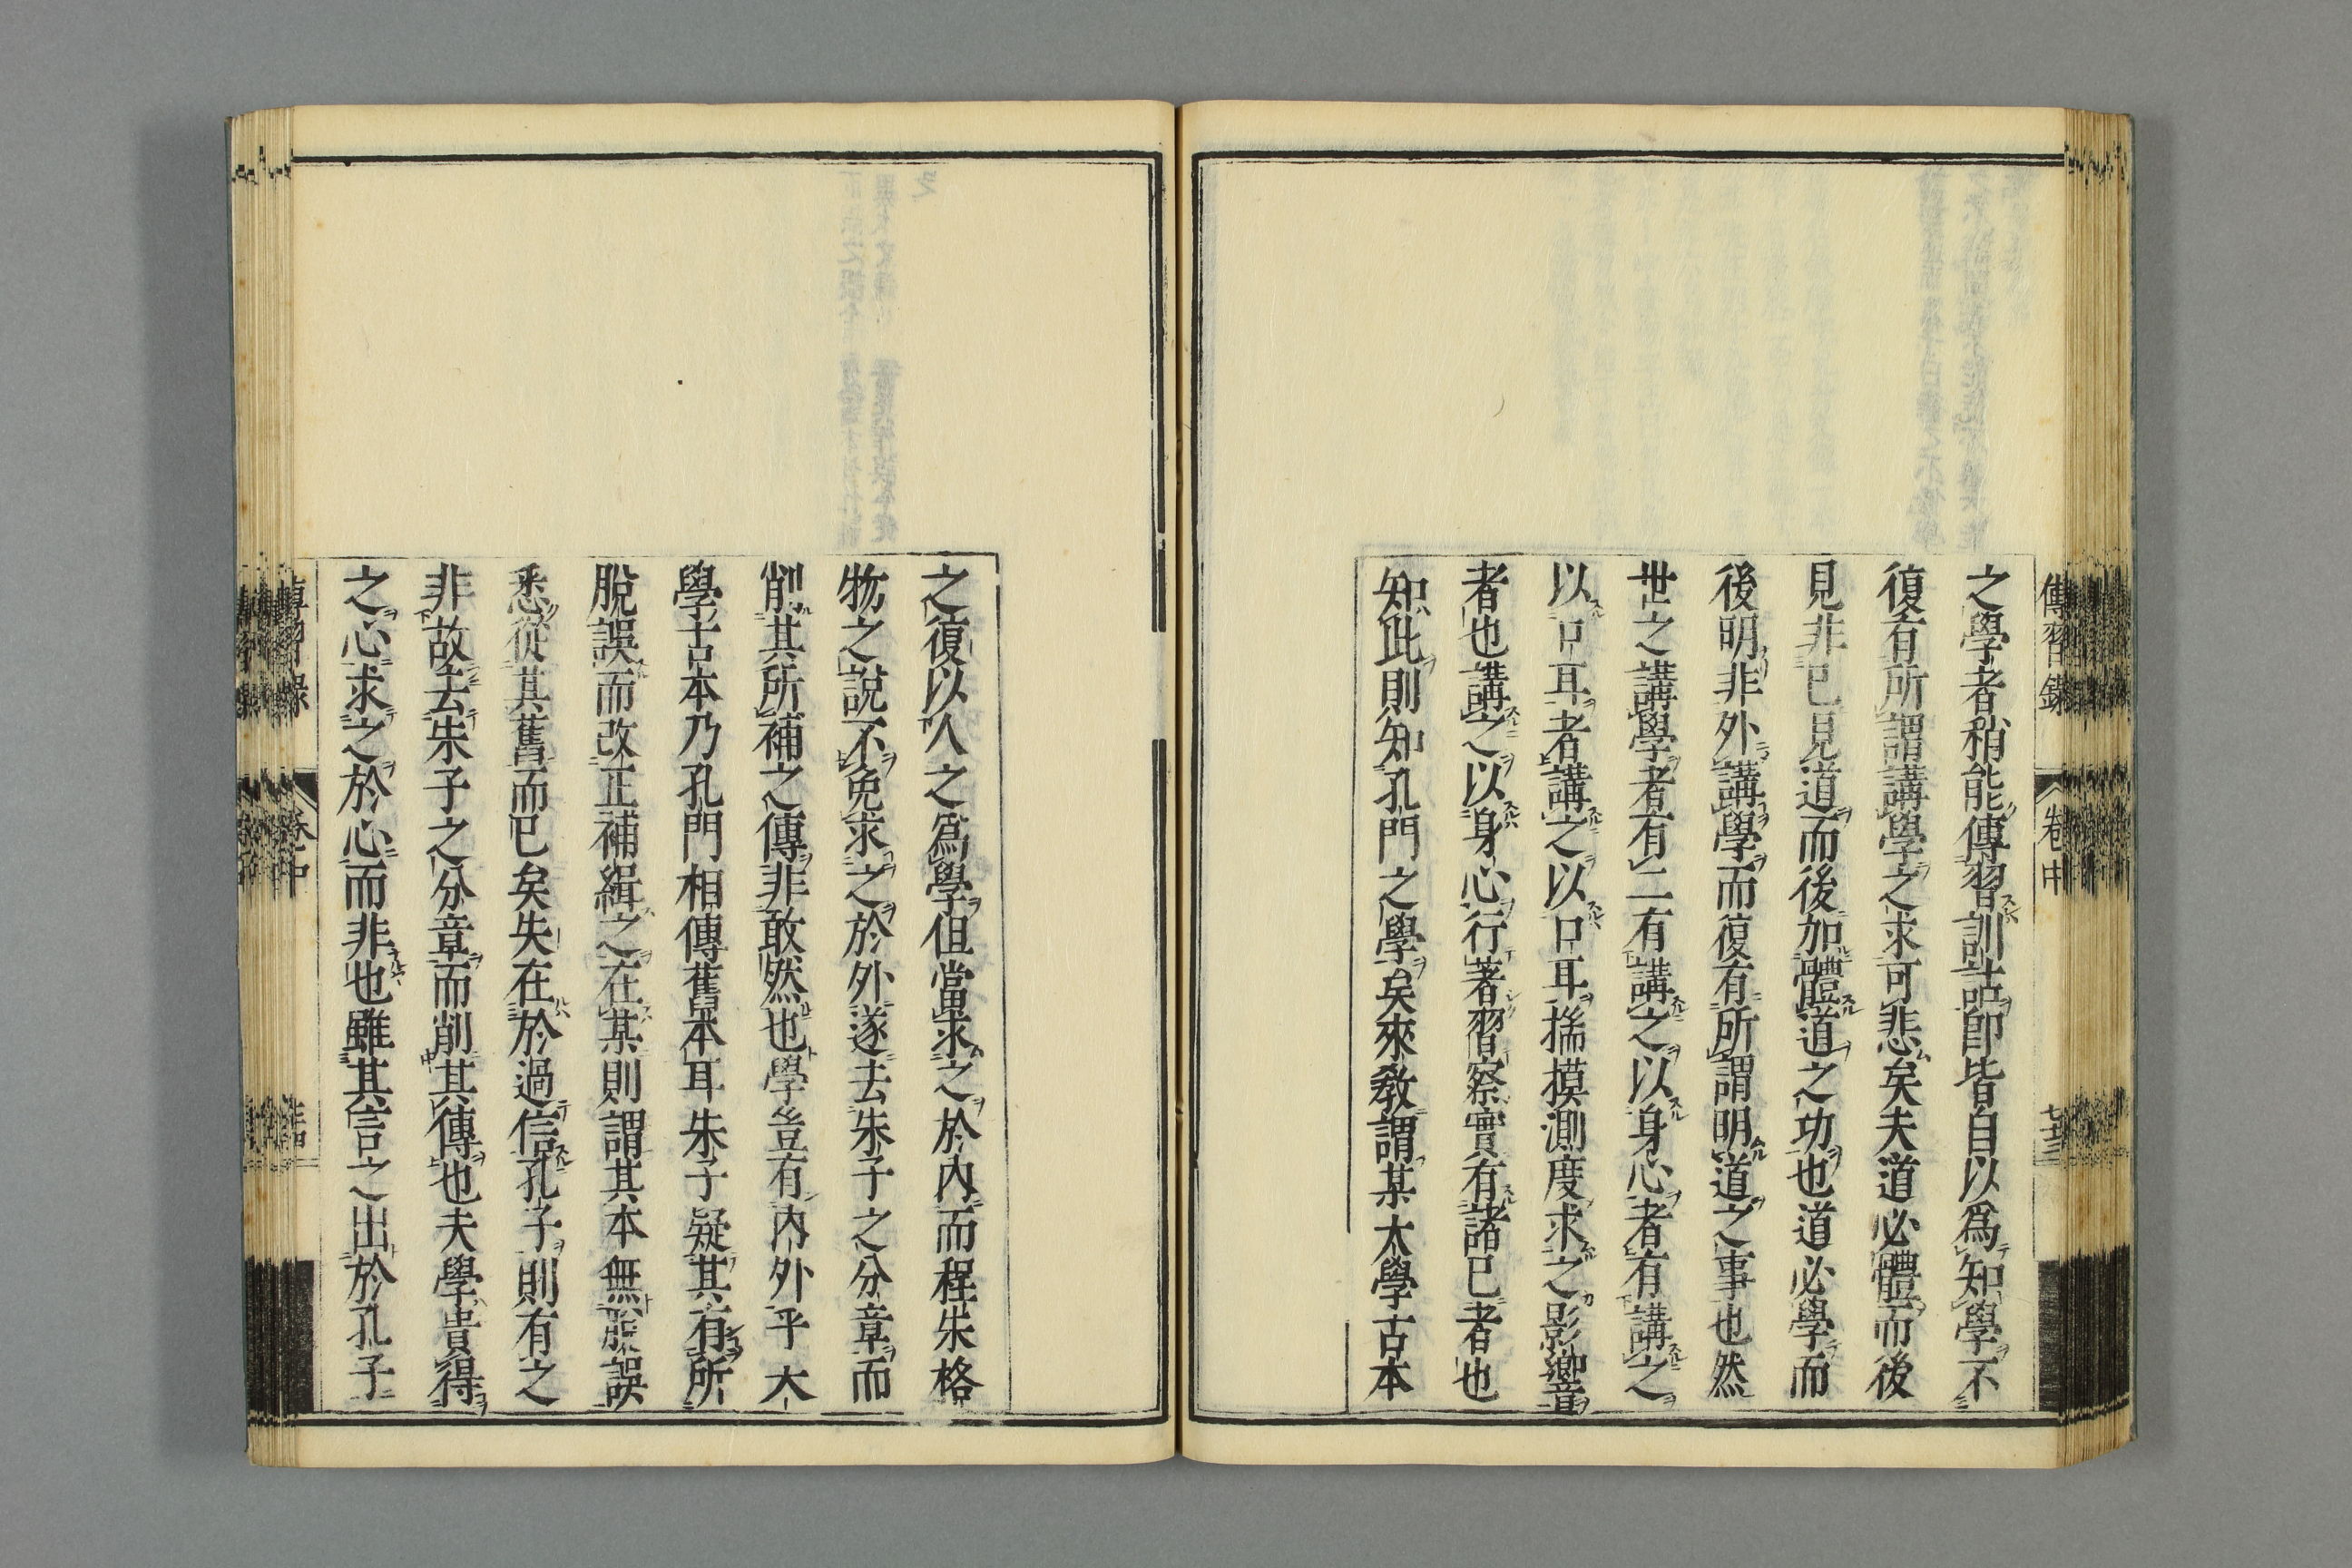 傳習錄
卷中
之學者稍能傳習訓詁即皆自以爲知學不
復有所謂講學之求可悲矣夫道必體而後
見非已見道而後加體道之功也道必學而
後明非外講學而復有所謂明道之事也然
世之講學者有二有講之以身心者有講之
以口耳者講之以口耳揣摸測度求之影響
者也講之以身心行著習察實有諸已者也
知此則知孔門之學矣來敎謂某大學古本
之復以人之爲學但當求之於內而程朱格
物之說不免求之於外遂去朱子之分章而
削其所補之傳非敢然也學豈有內外乎大
學古本乃孔門相傳舊本耳朱子疑其有所
脫誤而改正補緝之在某則謂其本無脫誤
悉從其舊而已矣失在於過信孔子則有之
非故去朱子之分章而削其傳也夫學貴得
之心求之於心而非也雖其言之出於孔子
傳習錄
卷中